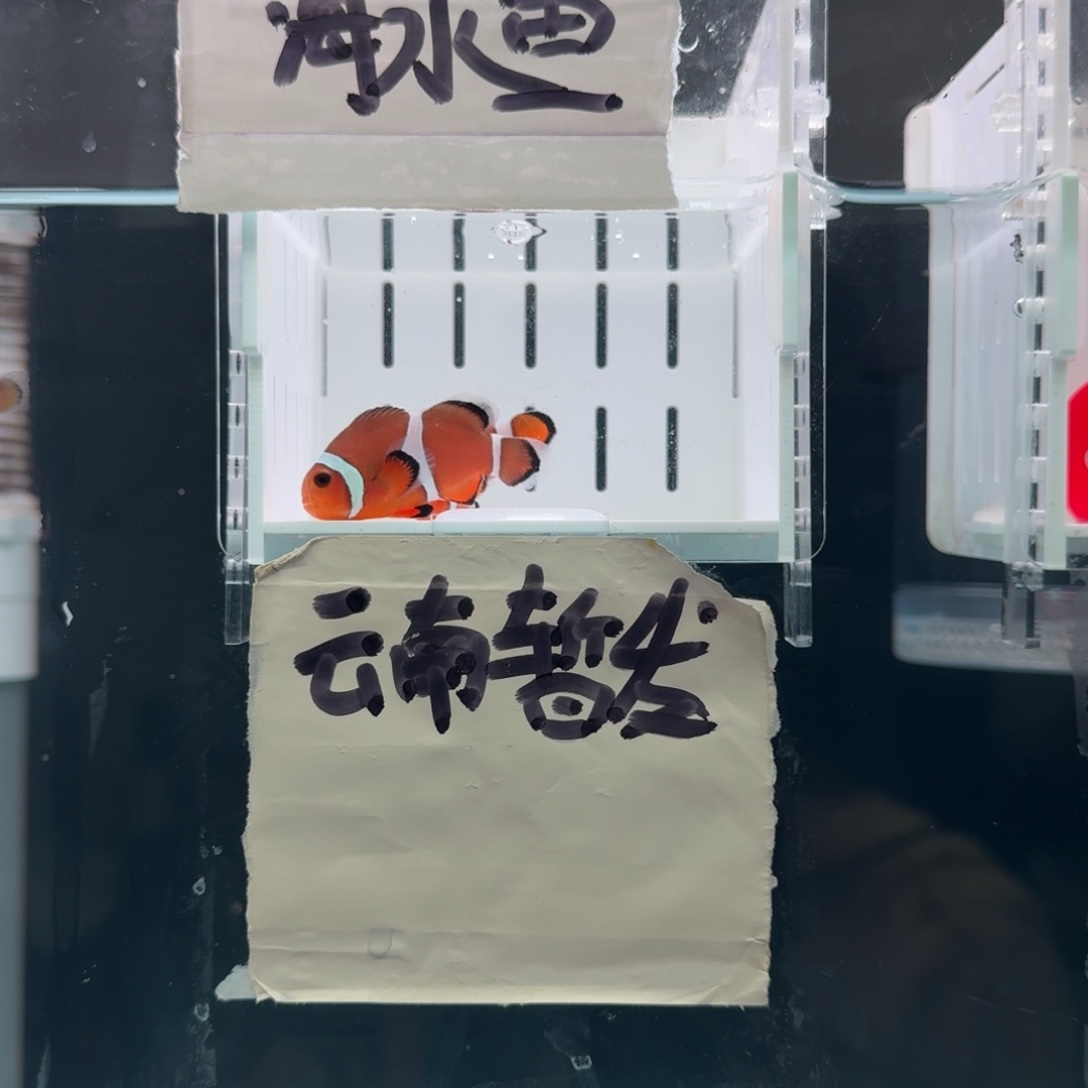 海水鱼
云南暂发